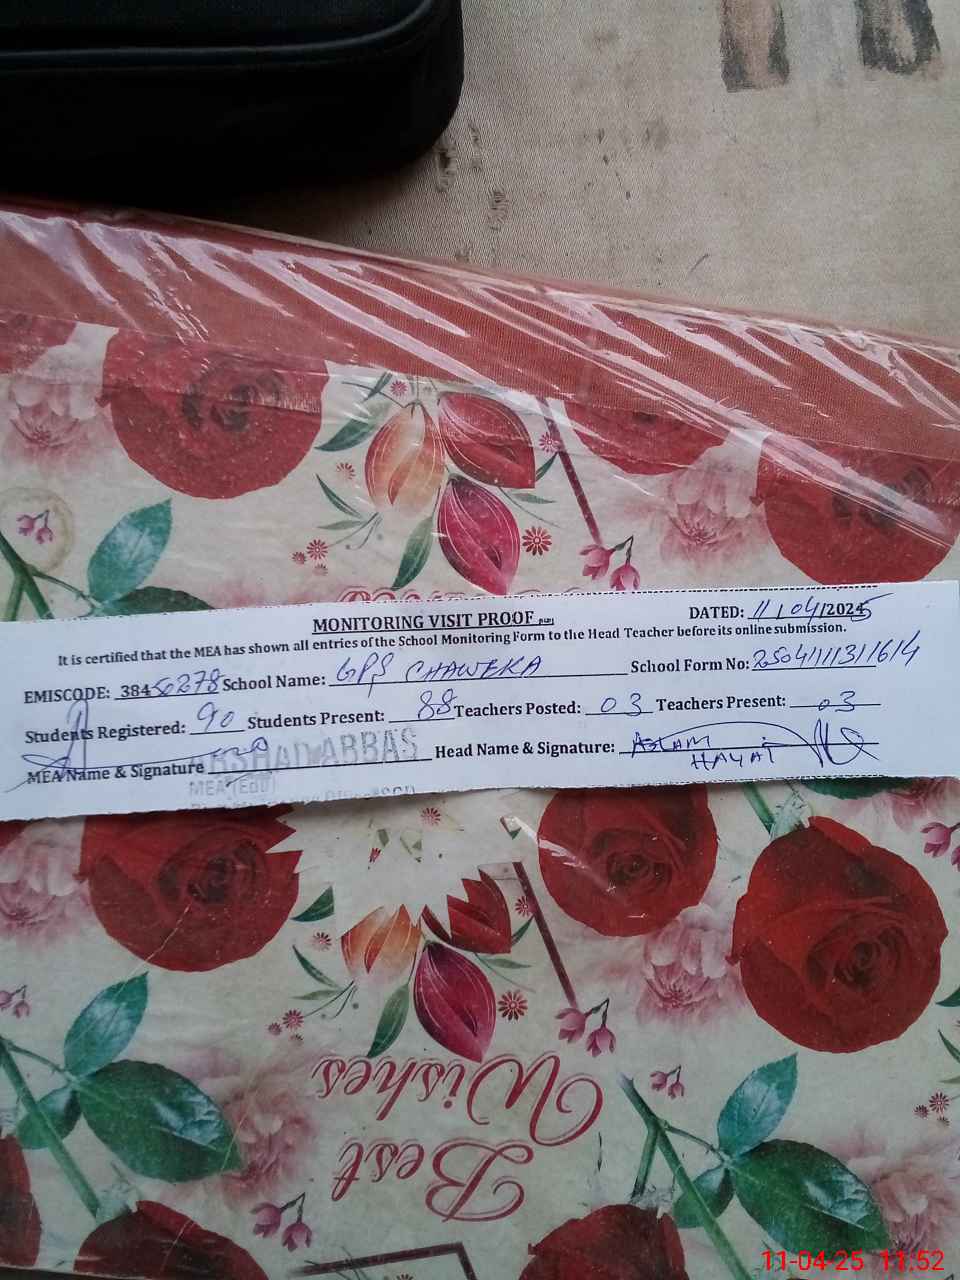 MONITORING VISIT PROOF
DATED: 11/04/2025
It is certified that the MEA has shown all entries of the School Monitoring Form to the Head Teacher before its online submission.
EMISCODE: 38450278 School Name: GPS CHAWEKA School Form No:
Students Registered: 90 Students Present: 88 Teachers Posted: 03 Teachers Present: 03
MEA Name & Signature ARSHAD ABBAS Head Name & Signature: ASLAM HAYAT
MEA (EDU)
Best
Wishes
11-04-25 11:52